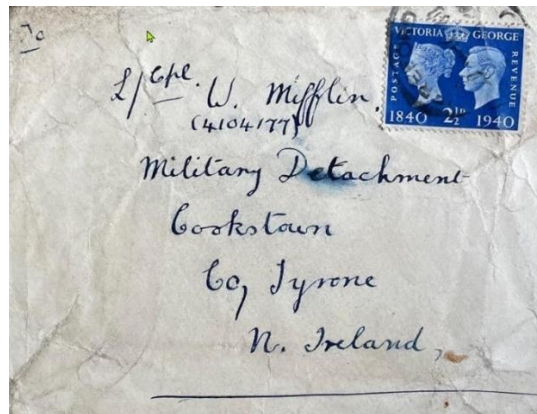 To
L/Cpl. W. Mifflin.
(4104177)
Military Detachment
Cookstown
Co, Tyrone
N. Ireland,
VICTORIA GEORGE
POSTAGE
REVENUE
1840 2½D 1940